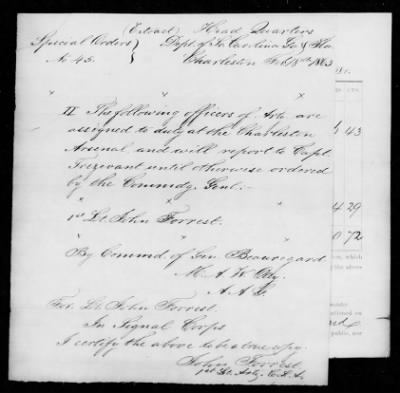 (Extract) Head Quarters
Special Orders } Dept. of So Carolina Ga & Fla
No 45. } Charleston Feb 18th 1863
x x x
II The following officers of Arty. are
assigned to duty at the Charleston
Arsenal and will report to Capt.
Trezevant until otherwise ordered
by the Commdg. Genl:-
x x x
1st Lt. John Forrest.
x x x
By Commd. of Gen. Beauregard
A. A. G.
For Lt. John Forrest.
In Signal Corps
I certify the above to be a true copy.
John Forrest
1st Lt. Arty. C.S.A.
43
4 29
0 72
which
the above
public, nor